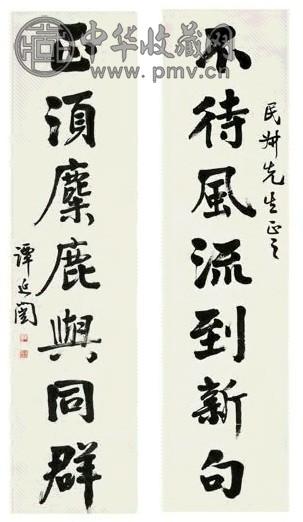 中华收藏网
www.pmv.cn
不待風流到新句
民先生正之
正須麋鹿與同群
譚延闓